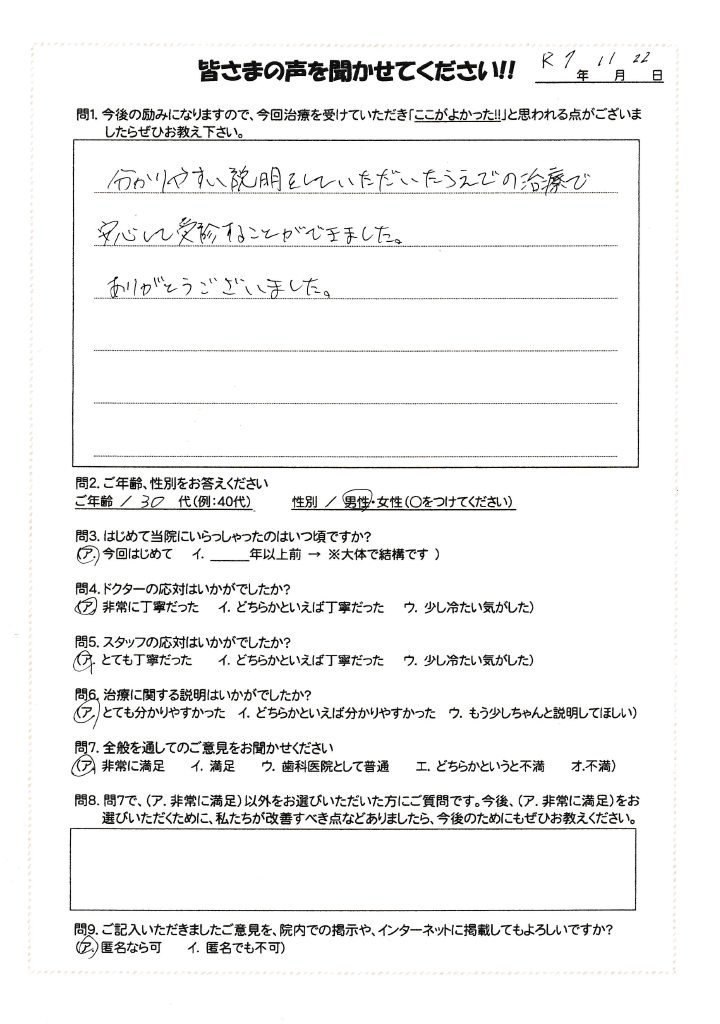 皆さまの声を聞かせてください!!
R7年 11月 22日
問1. 今後の励みになりますので、今回治療を受けていただき「ここがよかった!!」と思われる点がございま
したらぜひお教え下さい。
分かりやすい説明をしていただいたうえでの治療で
安心して受診することができました。
ありがとうございました。
問2. ご年齢、性別をお答えください
ご年齢 / 30 代(例:40代) 性別 / 男性・女性(○をつけてください)
問3. はじめて当院にいらっしゃったのはいつ頃ですか?
(ア. 今回はじめて イ. ____年以上前 → ※大体で結構です )
問4. ドクターの応対はいかがでしたか?
(ア. 非常に丁寧だった イ. どちらかといえば丁寧だった ウ. 少し冷たい気がした)
問5. スタッフの応対はいかがでしたか?
(ア. とても丁寧だった イ. どちらかといえば丁寧だった ウ. 少し冷たい気がした)
問6. 治療に関する説明はいかがでしたか?
(ア. とても分かりやすかった イ. どちらかといえば分かりやすかった ウ. もう少しちゃんと説明してほしい)
問7. 全般を通してのご意見をお聞かせください
(ア. 非常に満足 イ. 満足 ウ. 歯科医院として普通 エ. どちらかというと不満 オ.不満)
問8. 問7で、(ア. 非常に満足)以外をお選びいただいた方にご質問です。今後、(ア. 非常に満足)をお
選びいただくために、私たちが改善すべき点などありましたら、今後のためにもぜひお教えください。
問9. ご記入いただきましたご意見を、院内での掲示や、インターネットに掲載してもよろしいですか?
(ア. 匿名なら可 イ. 匿名でも不可)